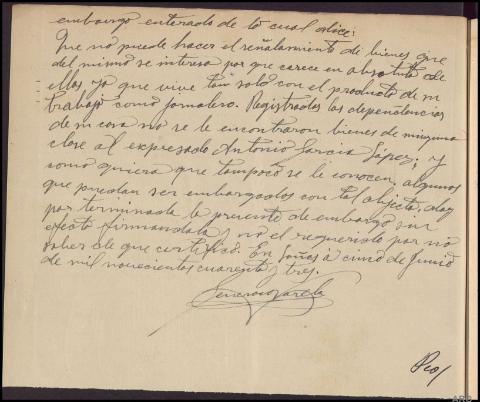 embargo enterado de lo cual dice:
Que no puede hacer el señalamiento de bienes que
del mismo se interesa por que carece en absoluto de
ellos ya que vive tan solo con el producto de su
trabajo como jornalero. Registradas las dependencias
de su casa no se le encontraron bienes de ninguna
clase al expresado Antonio Garcia López; y
como quiera que tampoco se le conocen algunos
que puedan ser embargados con tal objeto, doy
por terminada la presente de embargo sin
efecto firmandola y no el requerido por no
saber de que certifico. En Loñes á cinco de Junio
de mil novecientos cuarenta y tres.
Generoso Varela